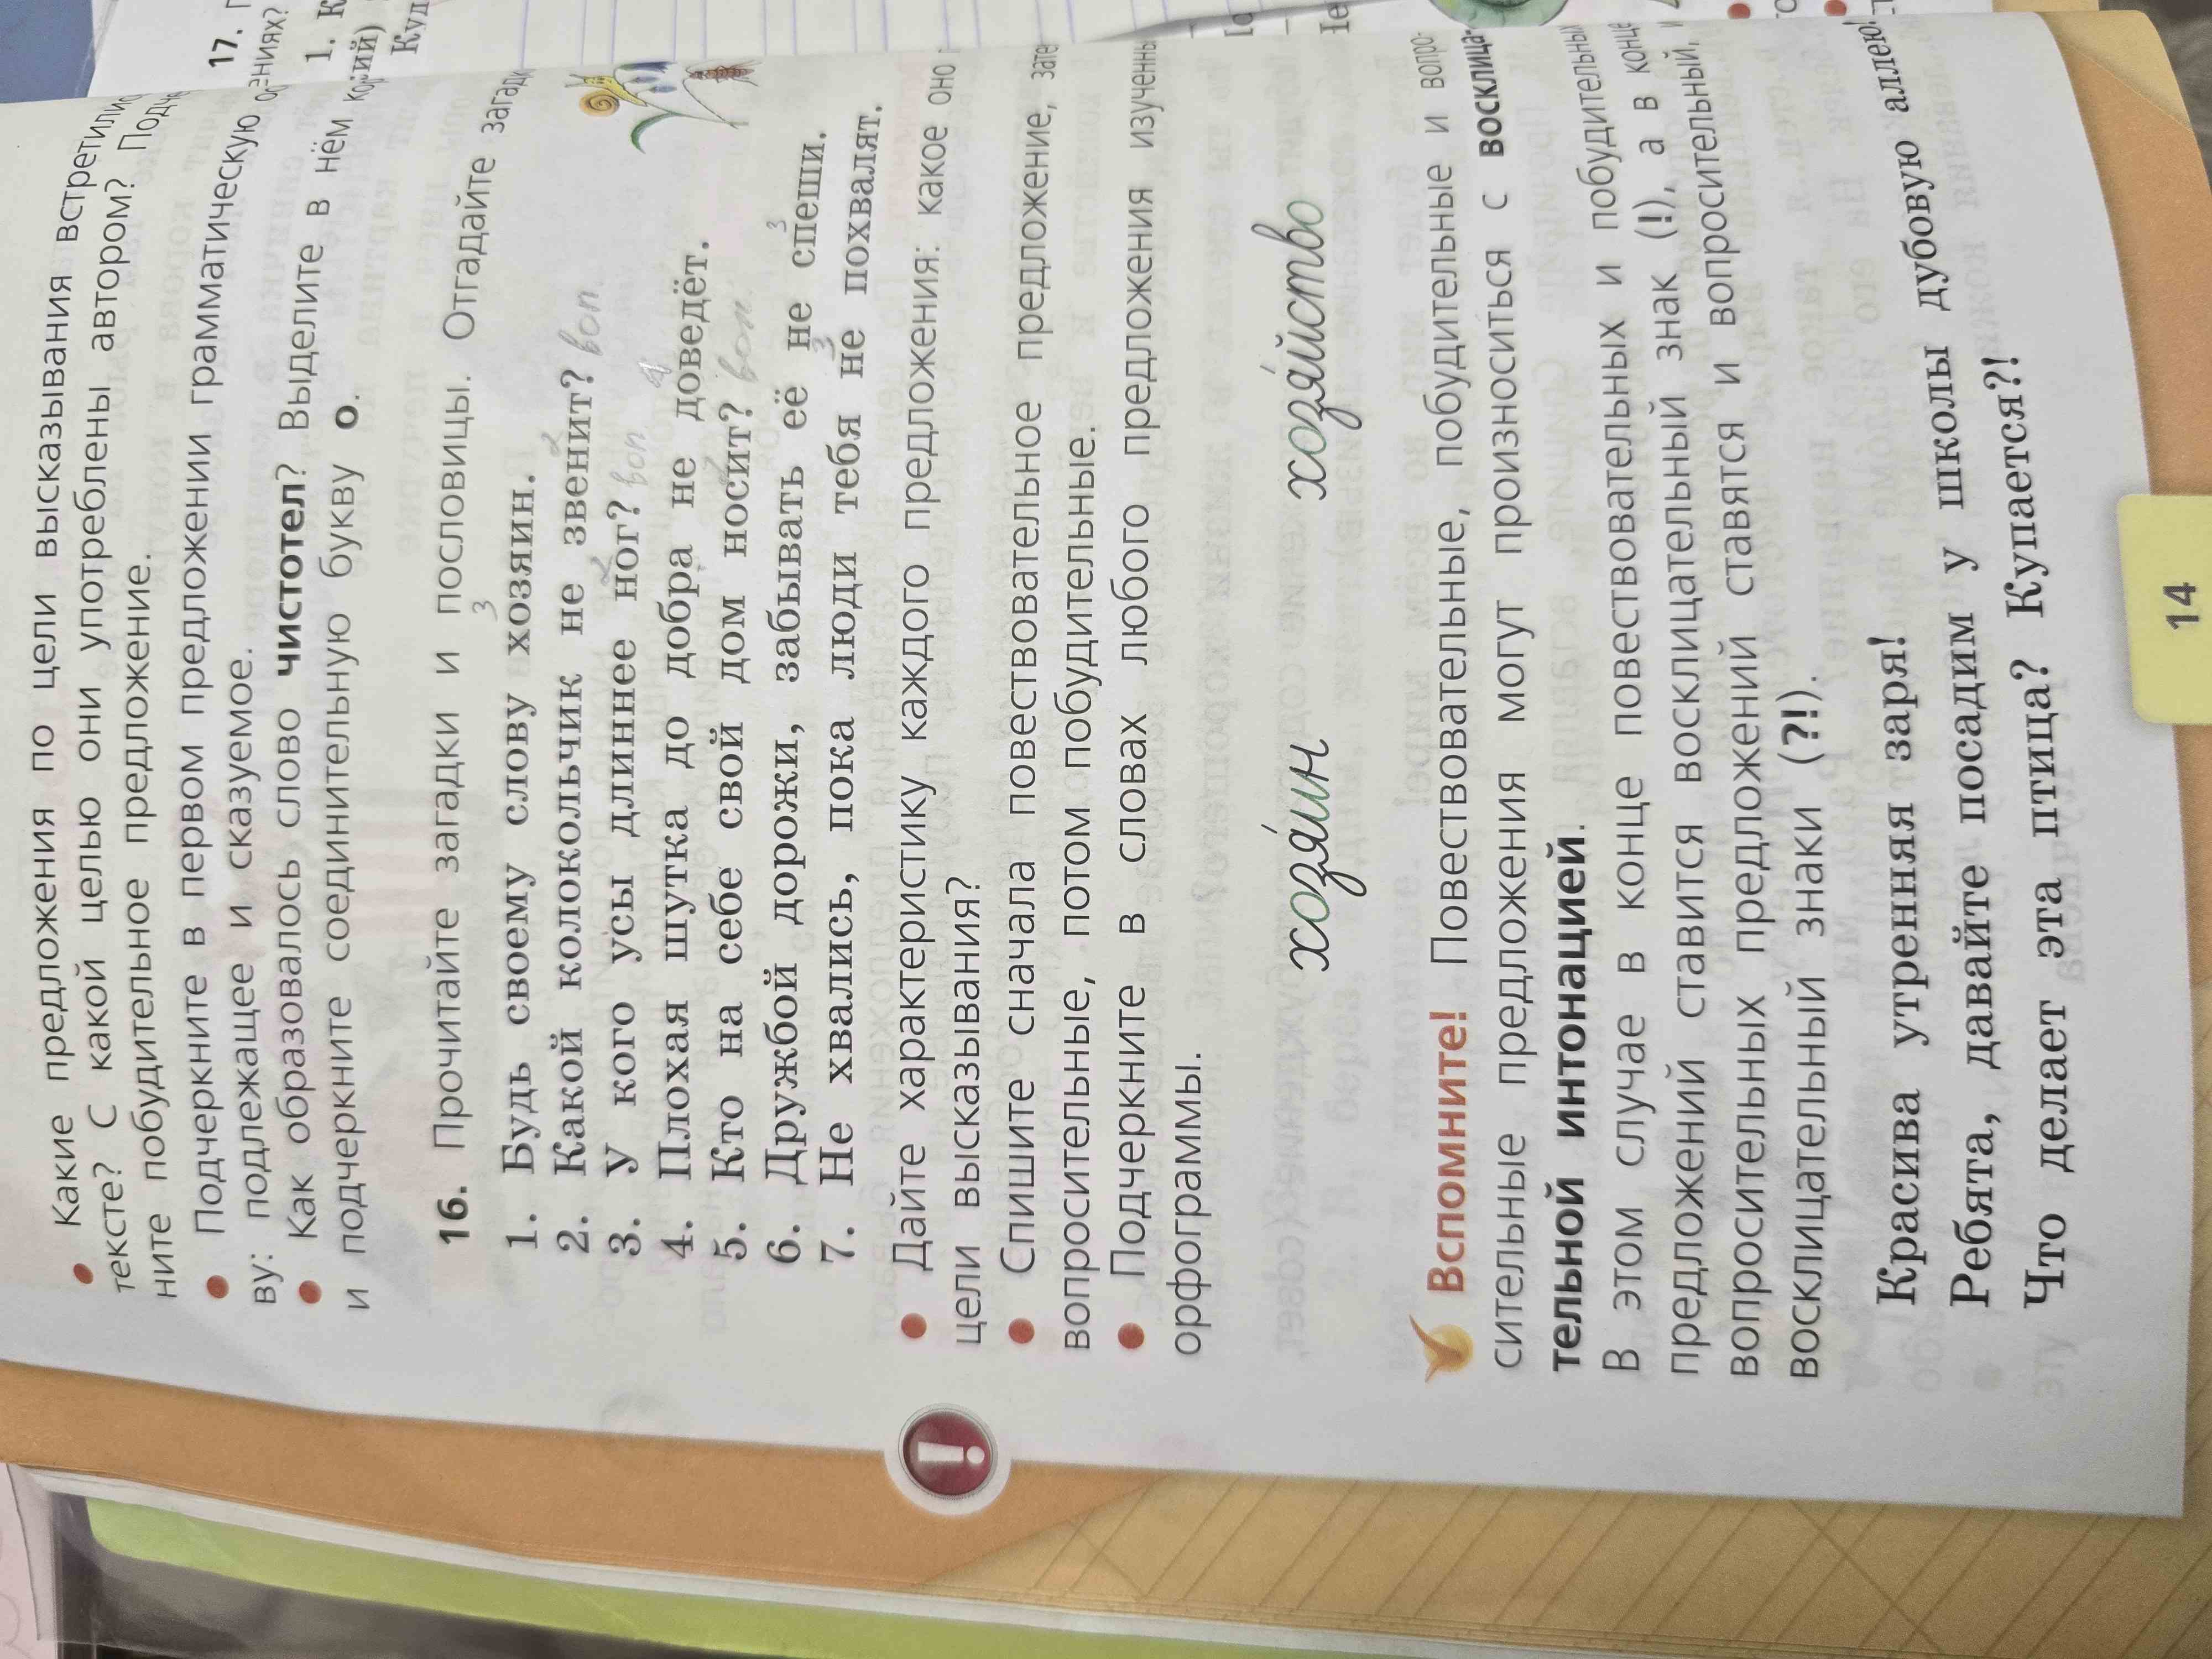 • Какие предложения по цели высказывания встретились
тексте? С какой целью они употреблены автором?
ните побудительное предложение.
• Подчеркните в первом предложении грамматическую
ву: подлежащее и сказуемое.
• Как образовалось слово чистотел? Выделите в нём
и подчеркните соединительную букву о.
16. Прочитайте загадки и пословицы. Отгадайте
3
1. Будь своему слову хозяин.
2. Какой колокольчик не звенит? воп.
3. У кого усы длиннее ног? воп
4. Плохая шутка до добра не доведёт.
5. Кто на себе свой дом носит? воп.
6. Дружбой дорожи, забывать её не спеши.
7. Не хвались, пока люди тебя не похвалят.
• Дайте характеристику каждого предложения: какое оно
цели высказывания?
• Спишите сначала повествовательное предложение,
вопросительные, потом побудительные.
• Подчеркните в словах любого предложения изученные
орфограммы.
хозя́ин хозя́йство
Вспомните! Повествовательные, побудительные и вопро-
сительные предложения могут произноситься с восклица-
тельной интонацией.
В этом случае в конце повествовательных и побудительных
предложений ставится восклицательный знак (!), а в конце
вопросительных предложений ставятся и вопросительный, и
восклицательный знаки (?!).
Красива утренняя заря!
Ребята, давайте посадим у школы дубовую аллею!
Что делает эта птица? Купается?!
14
17.